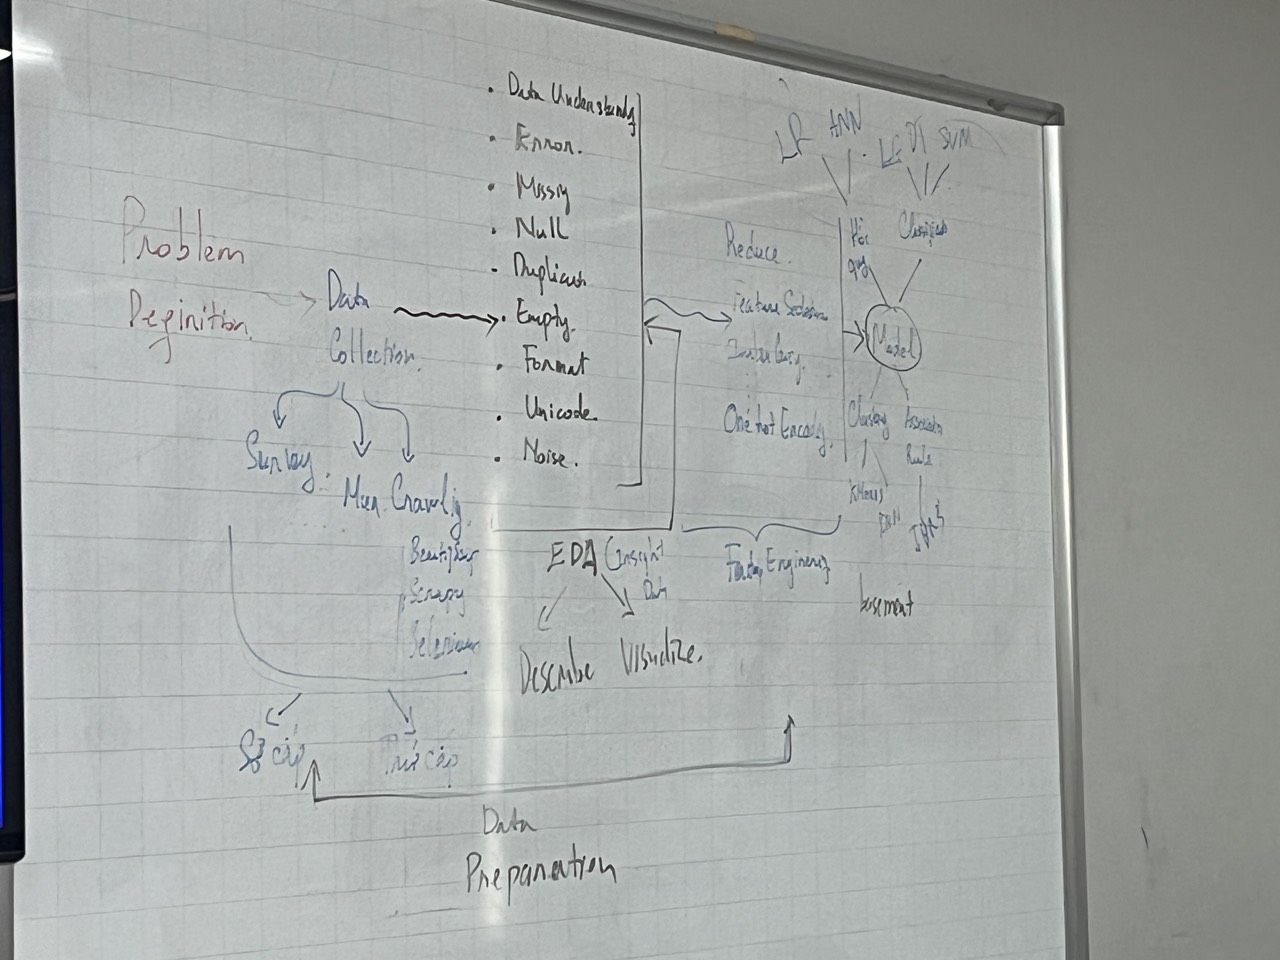 Problem
Definition.
Data
Collection.
Survey.
Crawlig
Beautifsoup
Scrapy
Selenium
Sơ cấp
Thứ cấp
• Data Understandg
• Error.
• Missig
• Null
• Duplicate
• Empty.
• Format
• Unicode.
• Noise.
EDA (Insight
Data
Describe Visualize.
Reduce.
Feature Selection
One hot Encodg.
Engineerig
LR ANN
DT SVM
Hồi
quy
Classificati
Model
Clusterig
Association
Rule
KMeans
basement
Data
Preparation